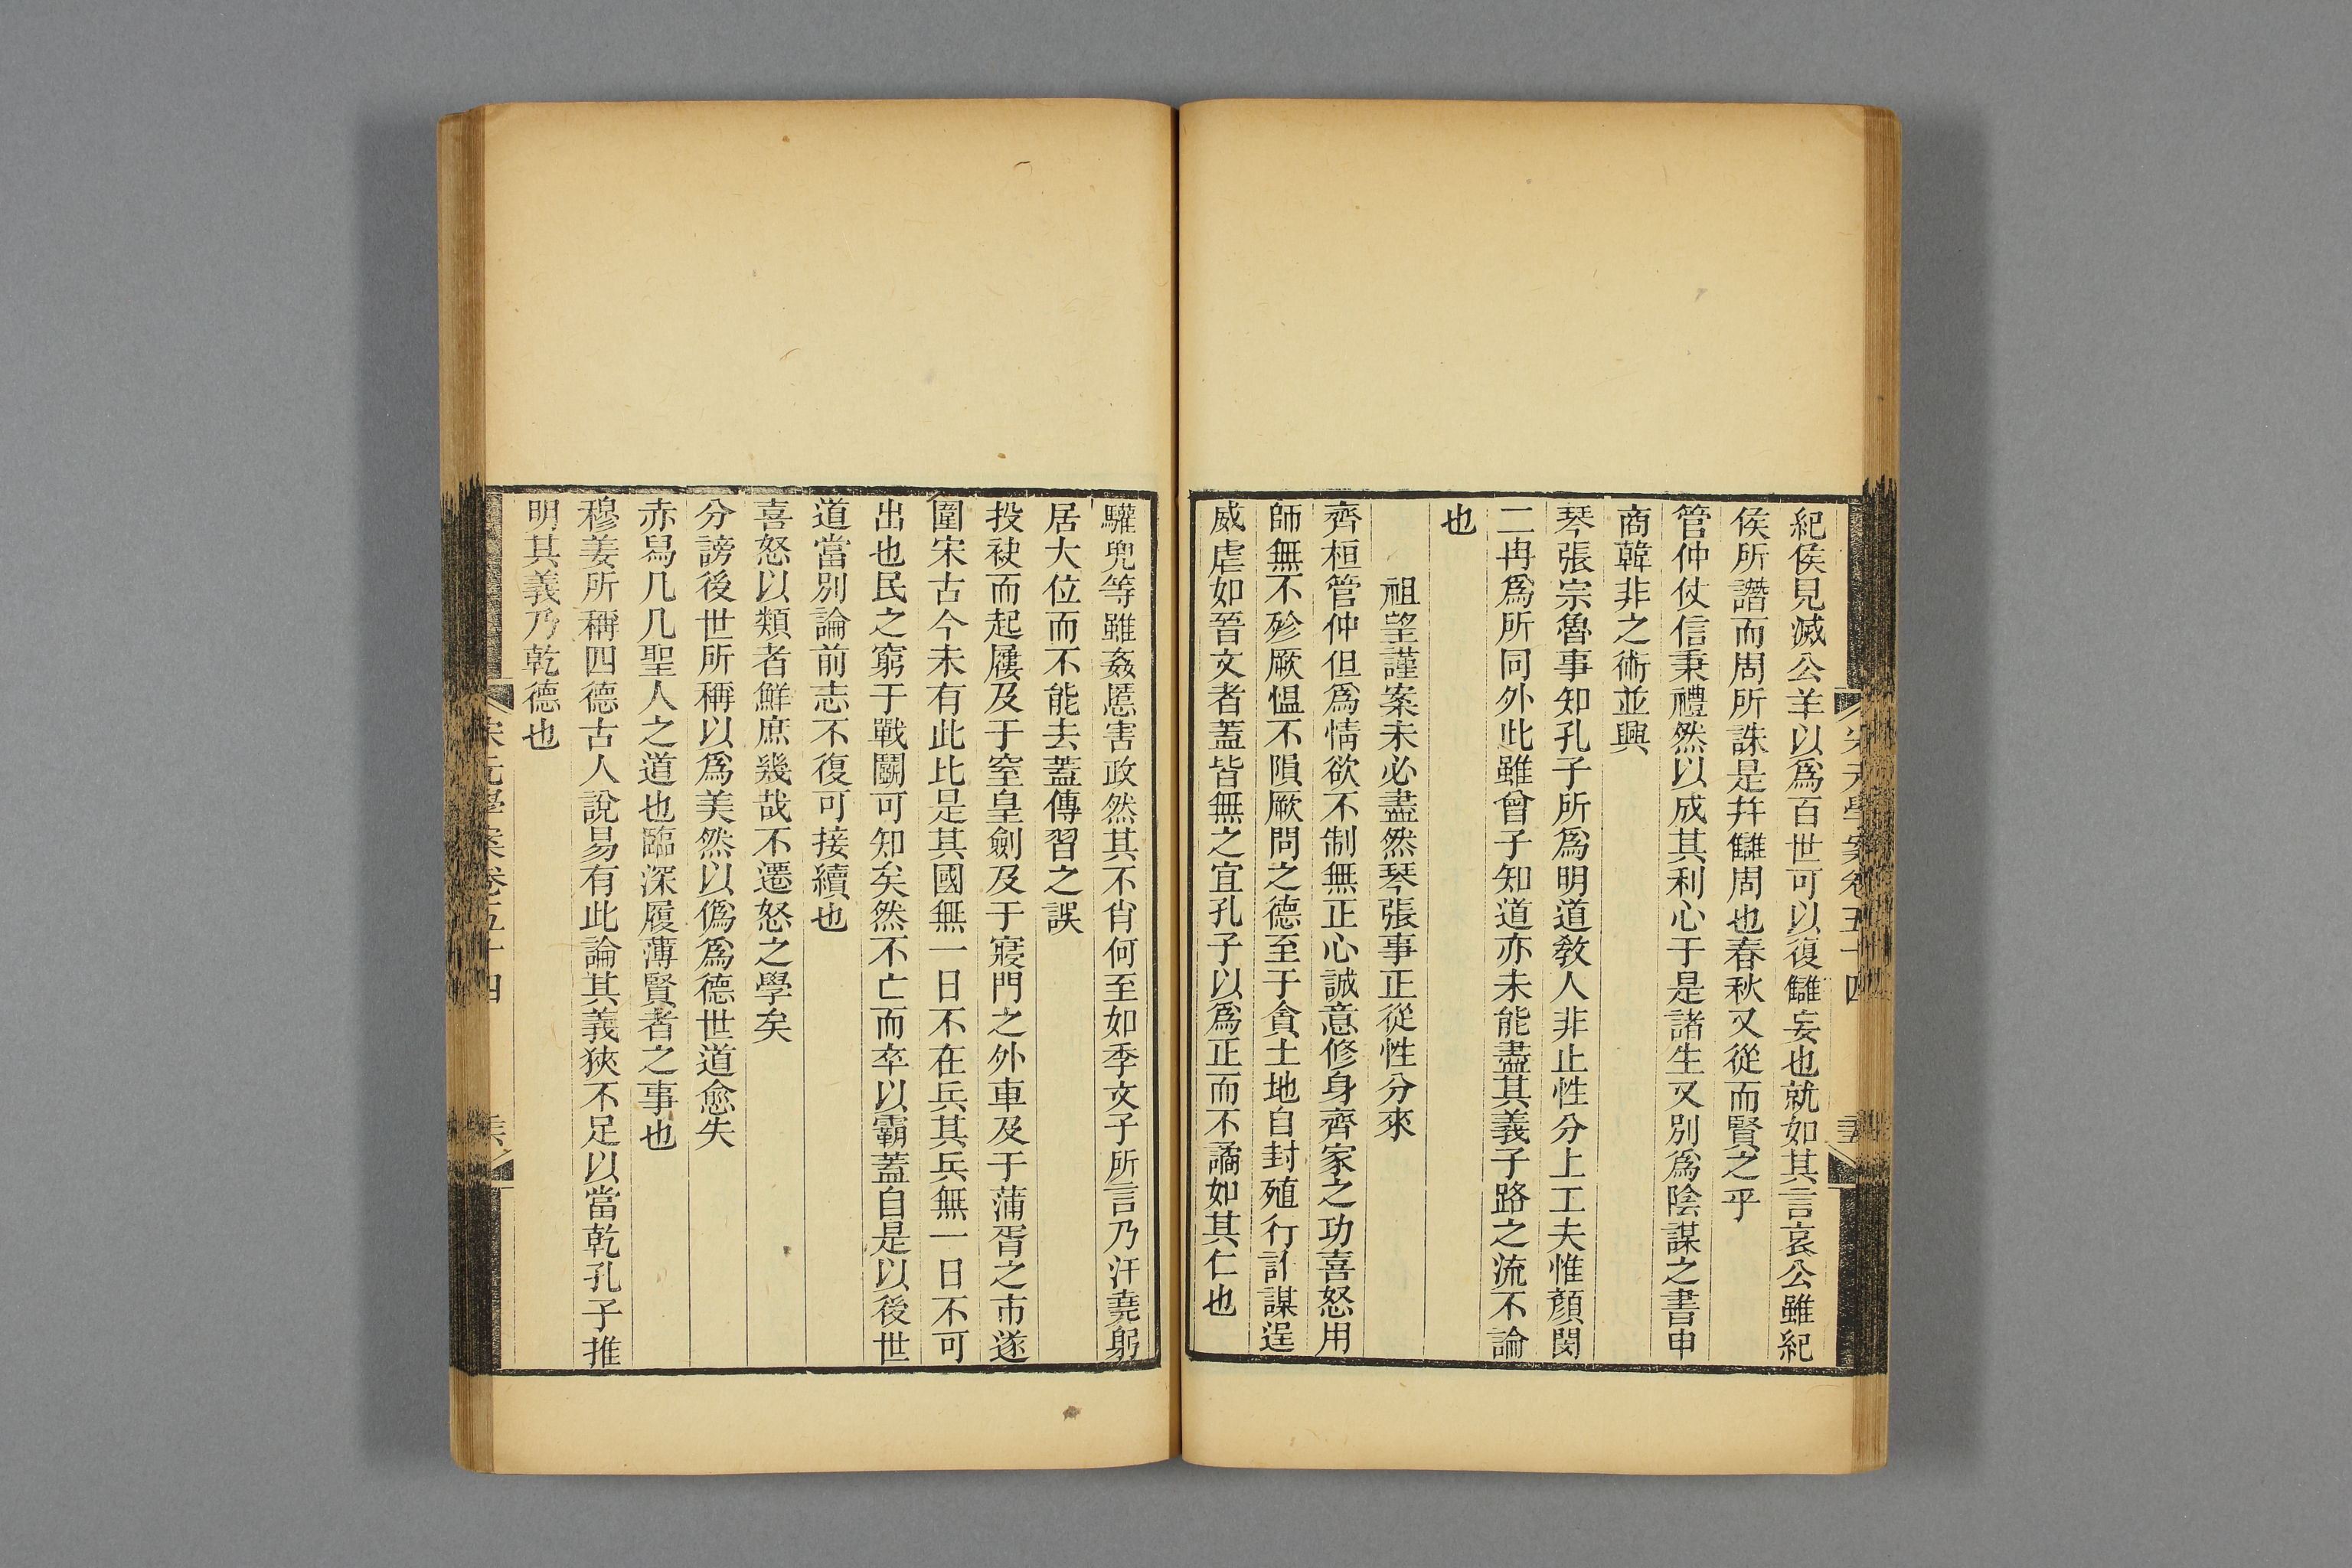 紀侯見滅公羊以爲百世可以復讎妄也就如其言哀公雖紀
侯所譖而周所誅是幷讎周也春秋又從而賢之乎
管仲仗信秉禮然以成其利心于是諸生又別爲陰謀之書申
商韓非之術並興
琴張宗魯事知孔子所爲明道敎人非止性分上工夫惟顏閔
二冉爲所同外此雖曾子知道亦未能盡其義子路之流不論
也
祖望謹案未必盡然琴張事正從性分來
齊桓管仲但爲情欲不制無正心誠意修身齊家之功喜怒用
師無不殄厥慍不隕厥問之德至于貪土地自封殖行詐謀逞
威虐如晉文者蓋皆無之宜孔子以爲正而不譎如其仁也
驩兜等雖姦慝害政然其不肖何至如季文子所言乃汗堯躬
居大位而不能去蓋傳習之誤
投袂而起屨及于窒皇劍及于寢門之外車及于蒲胥之市遂
圍宋古今未有此比是其國無一日不在兵其兵無一日不可
出也民之窮于戰鬭可知矣然不亡而卒以霸蓋自是以後世
道當別論前志不復可接續也
喜怒以類者鮮庶幾哉不遷怒之學矣
分謗後世所稱以爲美然以僞爲德世道愈失
赤舄几几聖人之道也臨深履薄賢者之事也
穆姜所稱四德古人說易有此論其義狹不足以當乾孔子推
明其義乃乾德也
宋元學案卷五十四